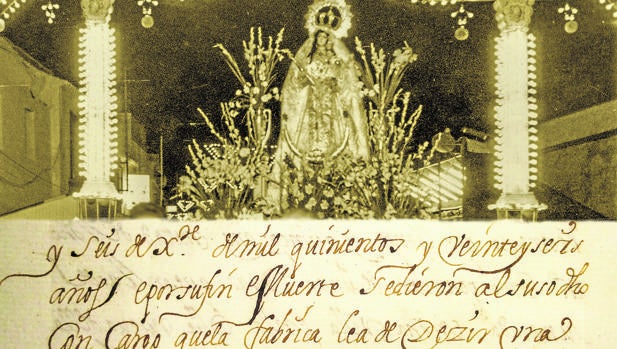 y seis de Xre de mil quinientos y Veinte y seis
años e por su fin e Muerte se dieron al susodho
con Cargo que la fabrica sea de Dezir vna